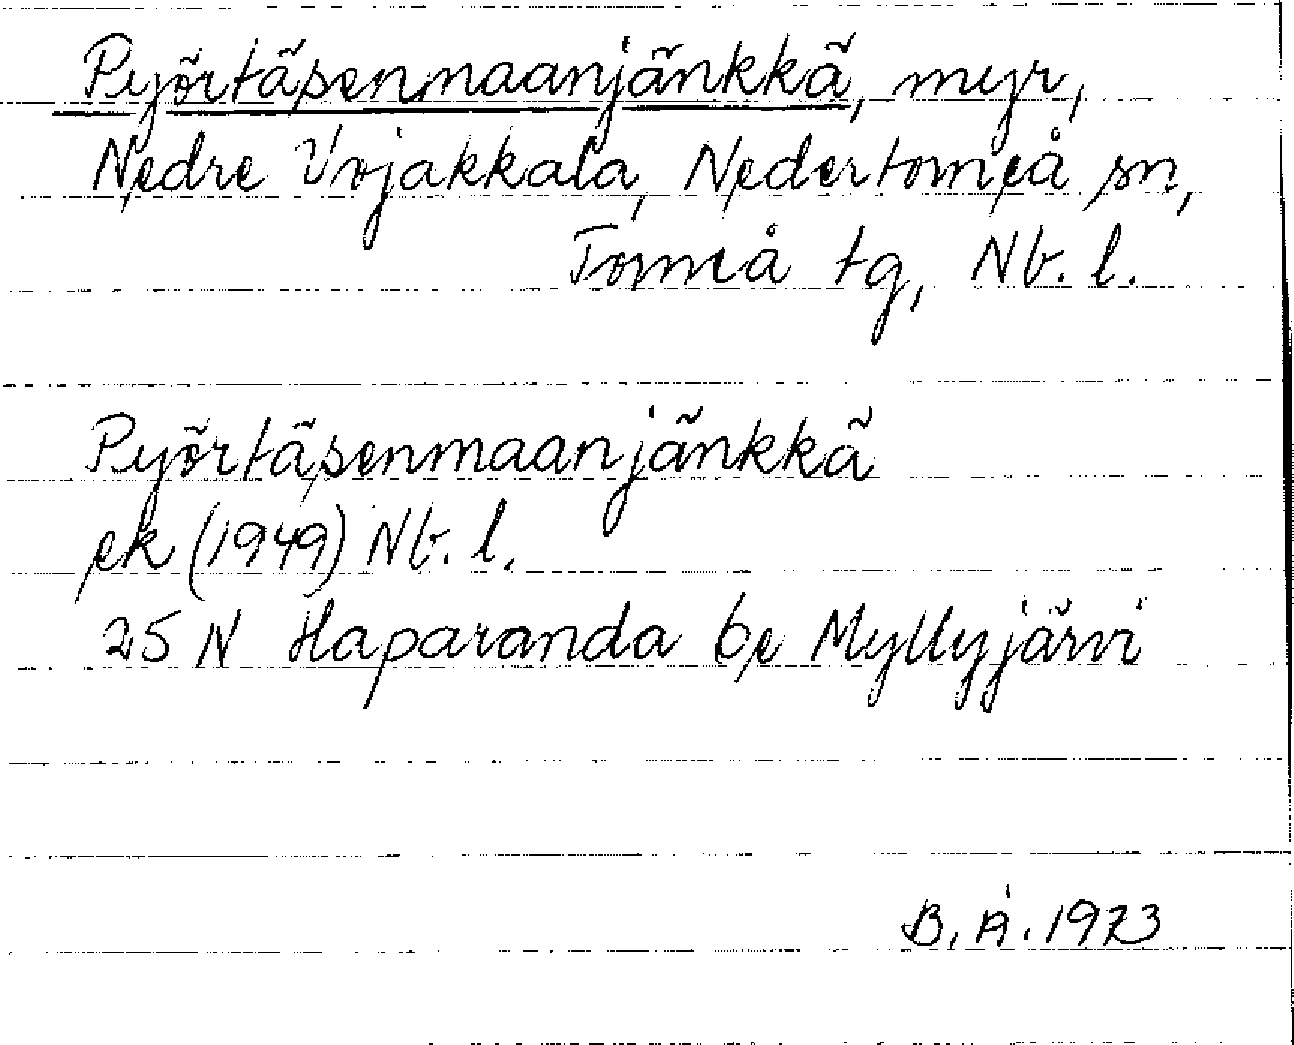 Pyörtäsenmaanjänkkä, myr,
Nedre Vojakkala, Nedertorneå sn,
Torneå tg, Nb. l.
Pyörtäsenmaanjänkkä
ek (1949) Nb. l.
25 N Haparanda be Myllyjärvi
B. Å. 1973